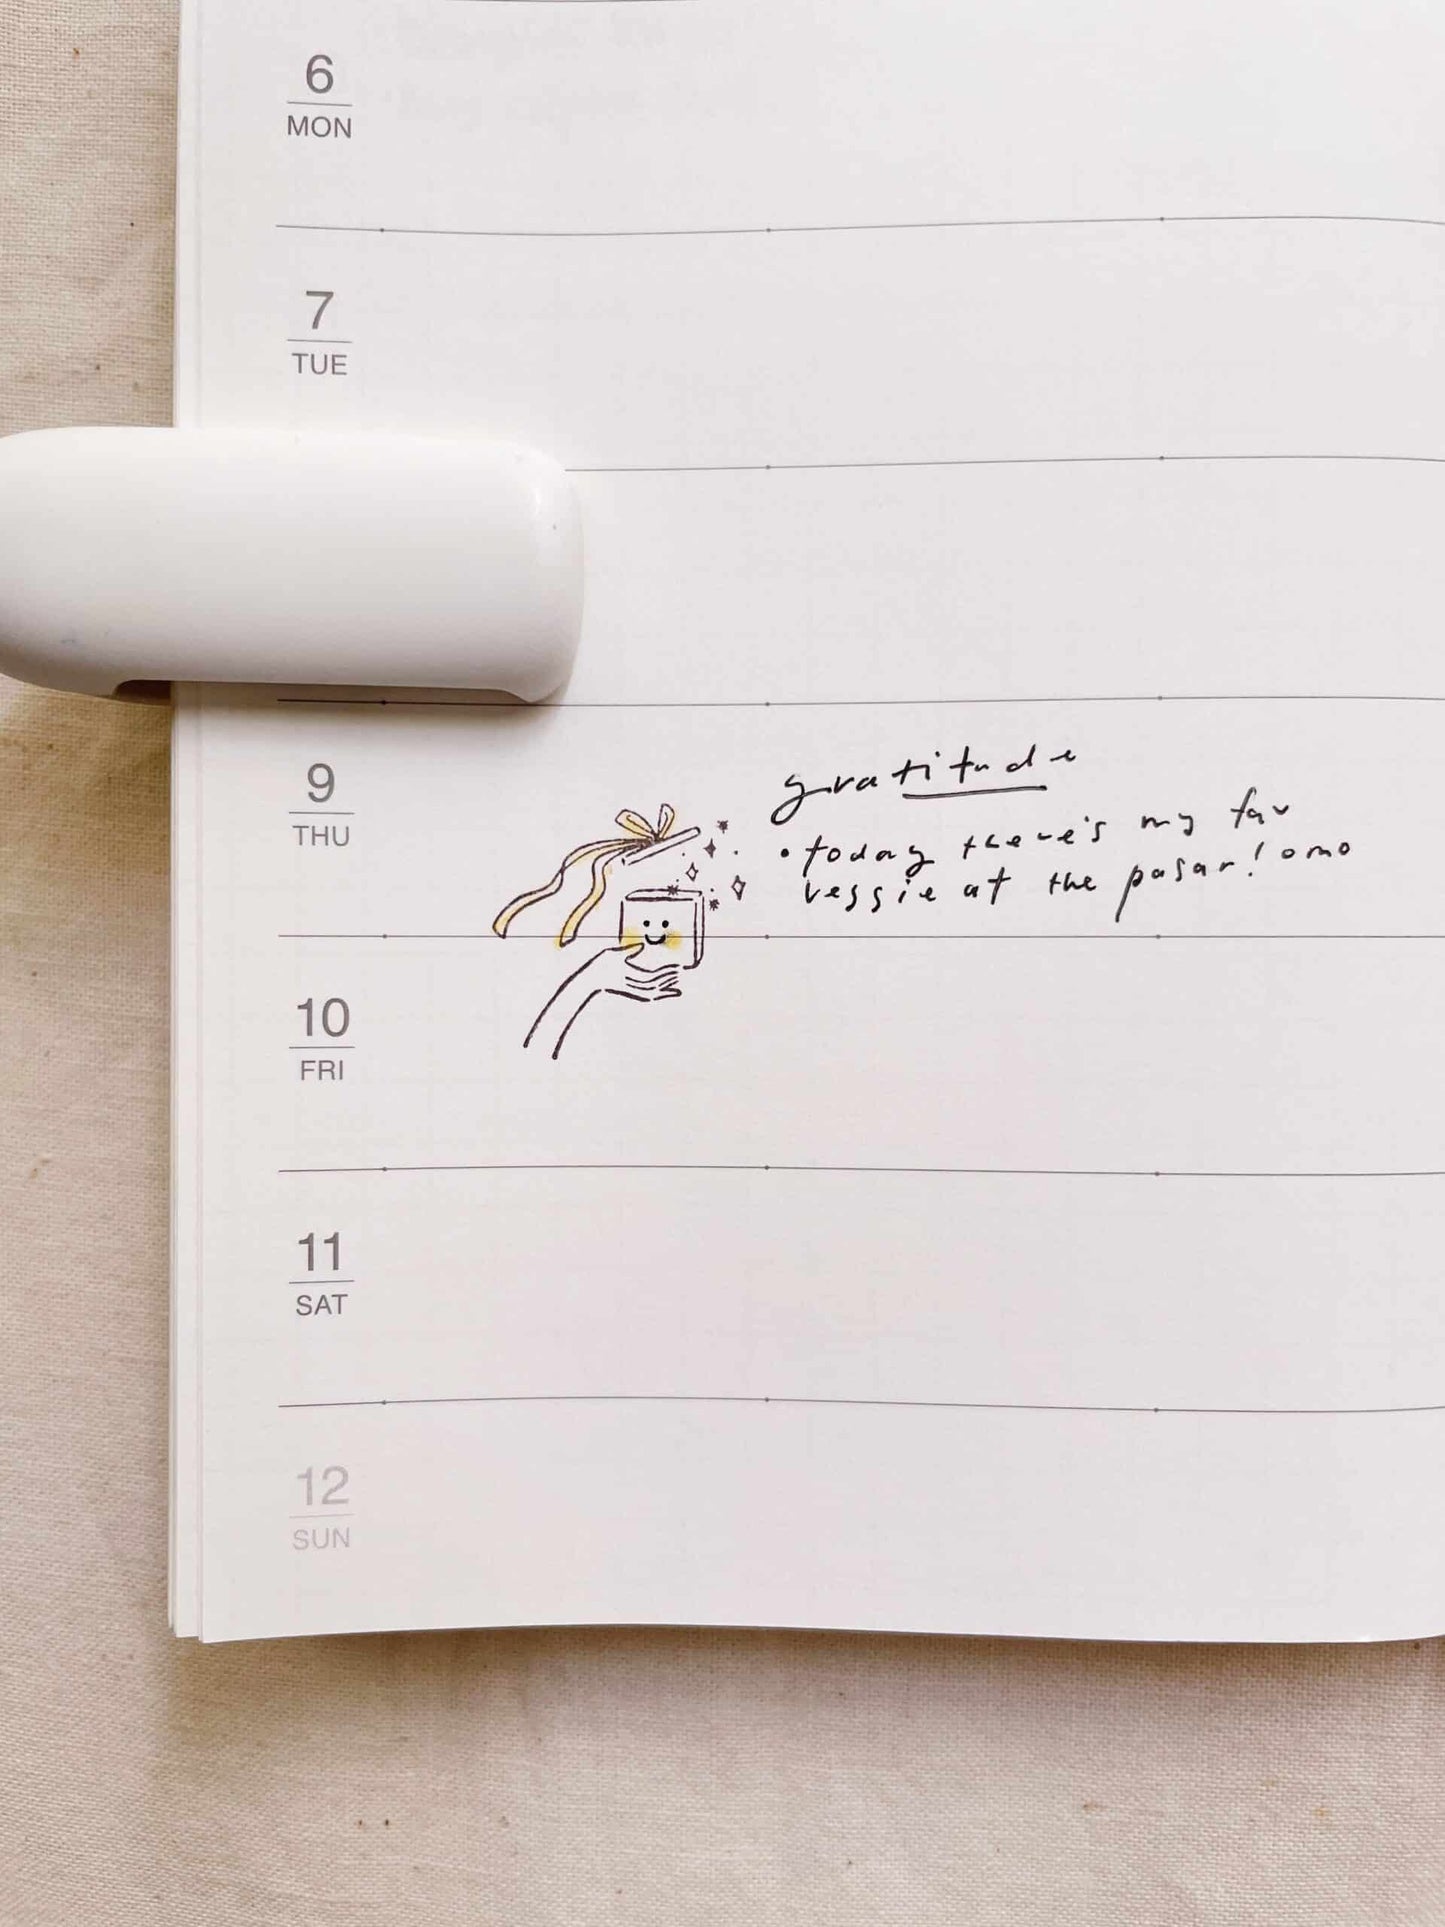 6
MON
7
TUE
9
THU
gratitude
• today there's my fav
veggie at the pasar! omo
10
FRI
11
SAT
12
SUN